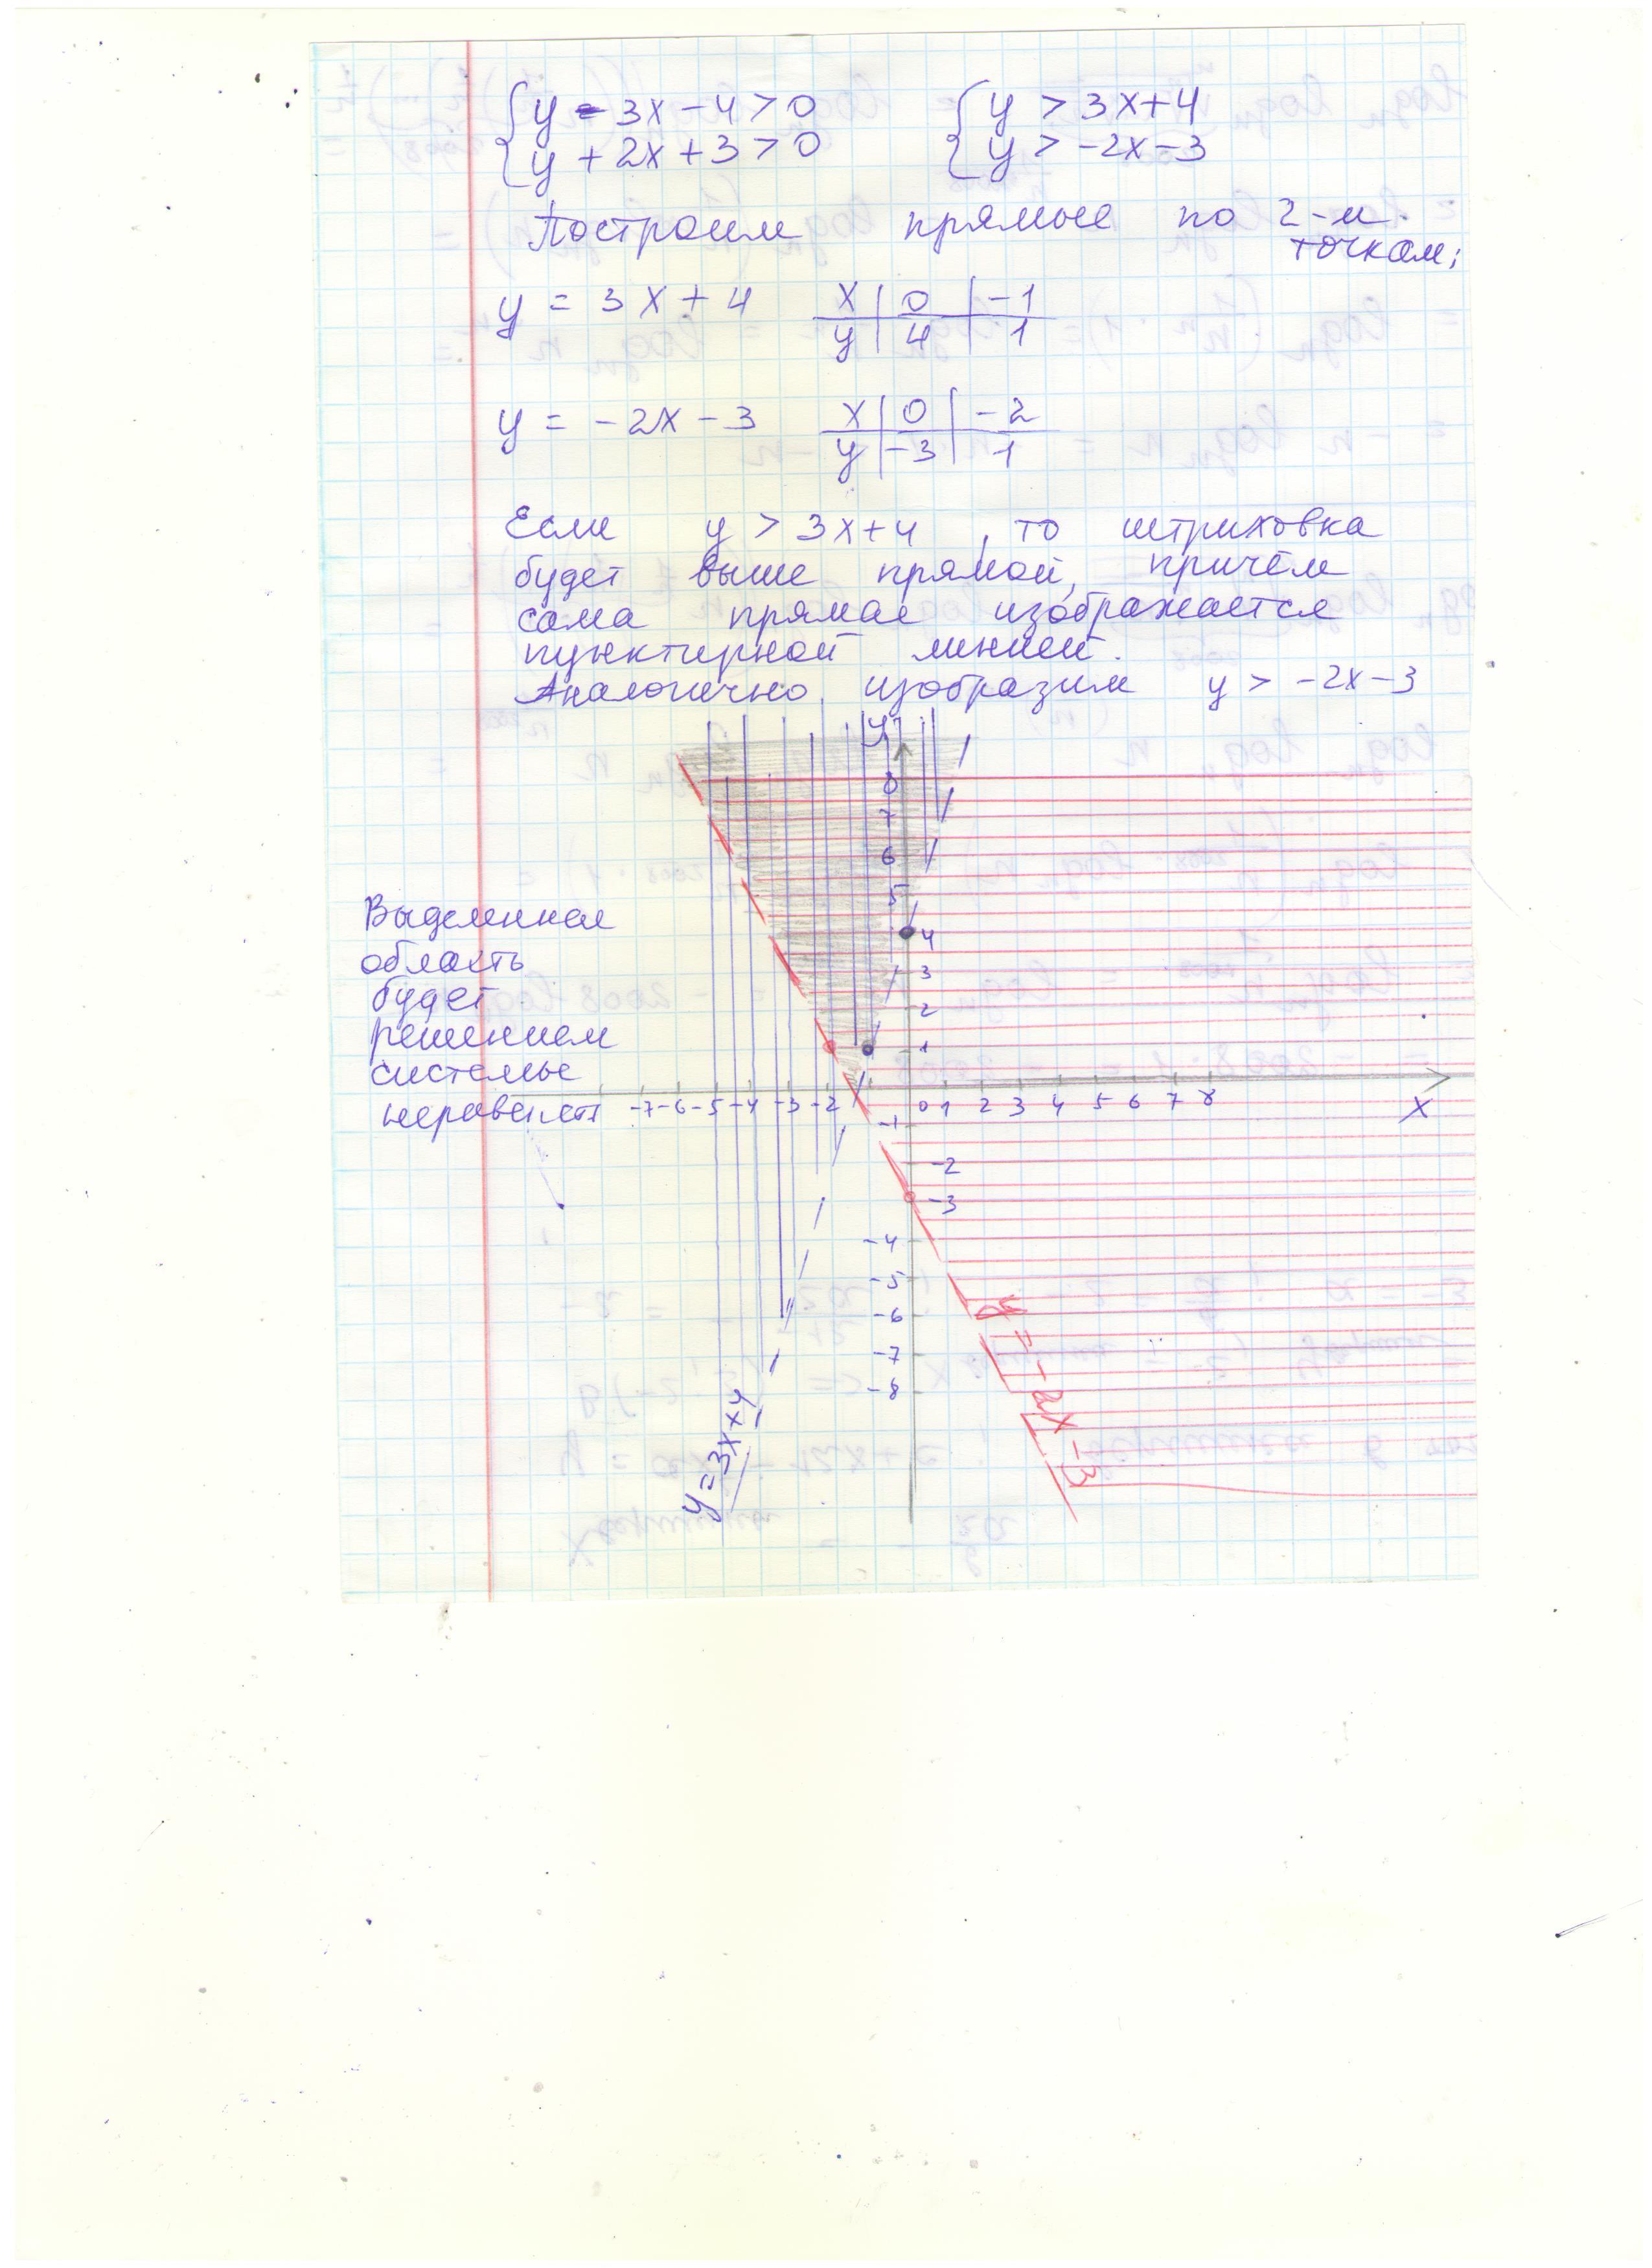 { y - 3x - 4 > 0 { y > 3x + 4
y + 2x + 3 > 0 y > -2x - 3
Построим прямые по 2-м
точкам;
y = 3x + 4 x | 0 | -1
y | 4 | 1
y = -2x - 3 x | 0 | -2
y | -3 | 1
Если y > 3x + 4, то штриховка
будет выше прямой, причём
сама прямая изображается
пунктирной линией.
Аналогично изобразим y > -2x - 3
y
8
7
6
5
4
3
2
1
Выделенная
область
будет
решением
системы
неравенств
-7 -6 -5 -4 -3 -2 0 1 2 3 4 5 6 7 8 x
-1
-2
-3
-4
-5
-6
-7
-8
y = 3x + 4
y = -2x - 3